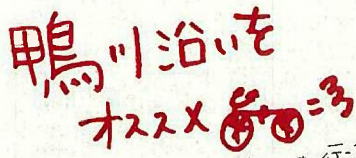 鴨川沿いを
オススメ